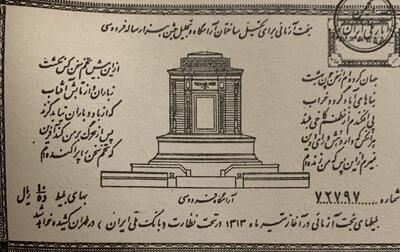 بخت آزمائی برای تکمیل ساختمان آرامگاه و تجلیل جشن هزار ساله فردوسی
بانک ملی ایران
جهان کرده‌ام از سخن چون بهشت
از این بیش تخم سخن کس نکشت
بناهای آباد گردد خراب
ز باران و از تابش آفتاب
پی افکندم از نظم کاخی بلند
که از باد و باران نیابد گزند
هر آنکس که دارد هش و رای و دین
پس از مرگ بر من کند آفرین
نمیرم از این پس که من زنده‌ام
که تخم سخن را پراکنده‌ام
آرامگاه فردوسی
شماره ۷۲۷۹۷
بهای بلیط ۱۰ ده ریال
بلیطهای بخت آزمائی در آغاز تیر ماه ۱۳۱۳ در تحت نظارت (بانک ملی ایران) در طهران کشیده خواهد شد